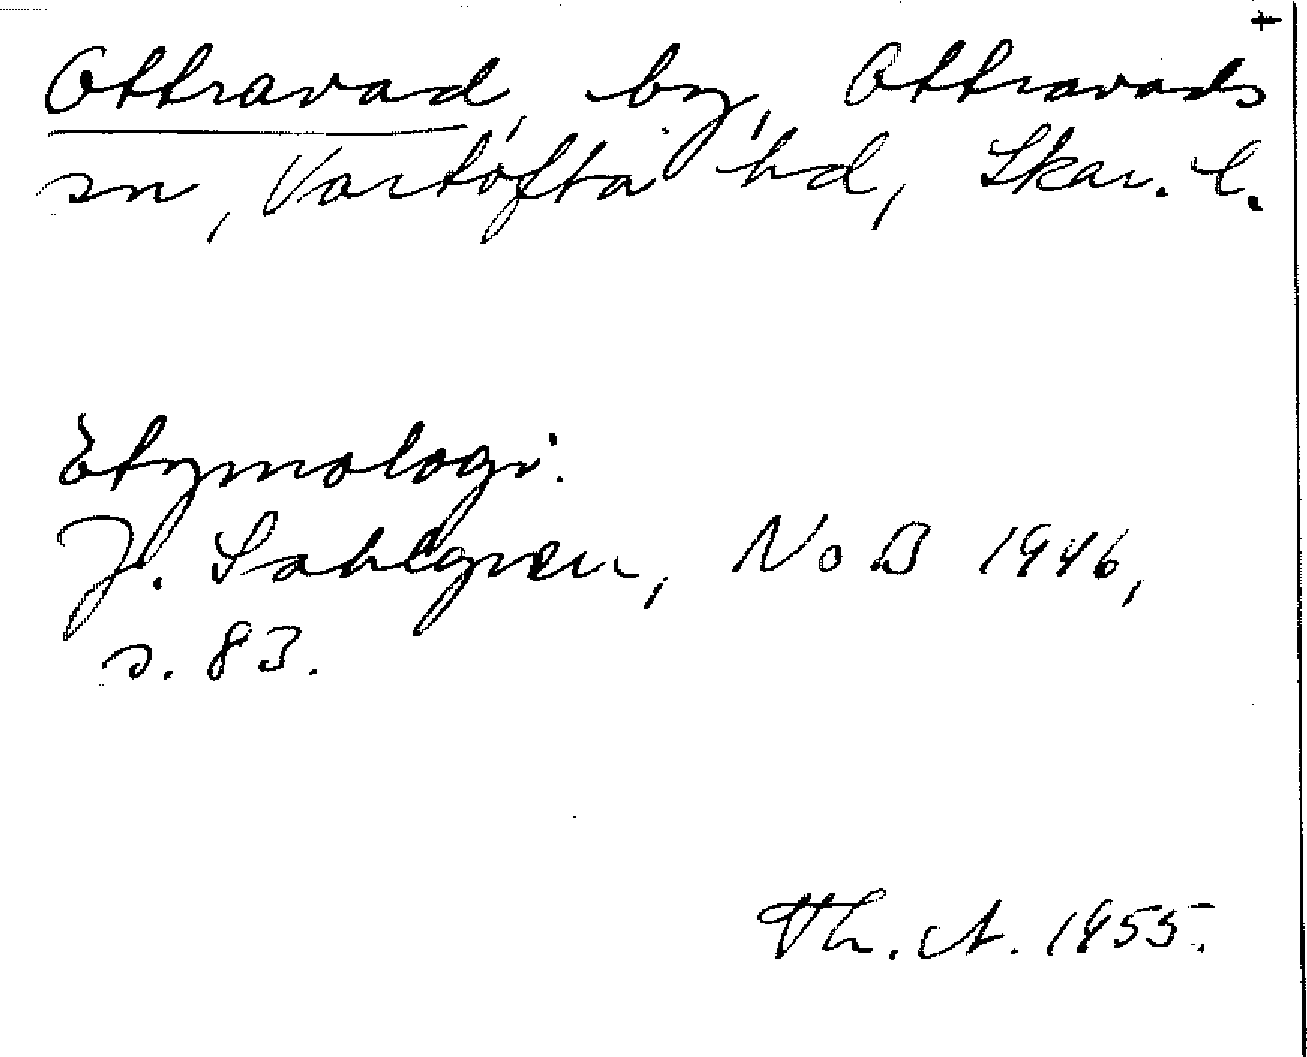 Ottravad, by, Ottravads
sn, Vartofta hd, Skar. l.
Etymologi.
J. Sahlgren, NoB 1946,
s. 83.
Th. A. 1955.